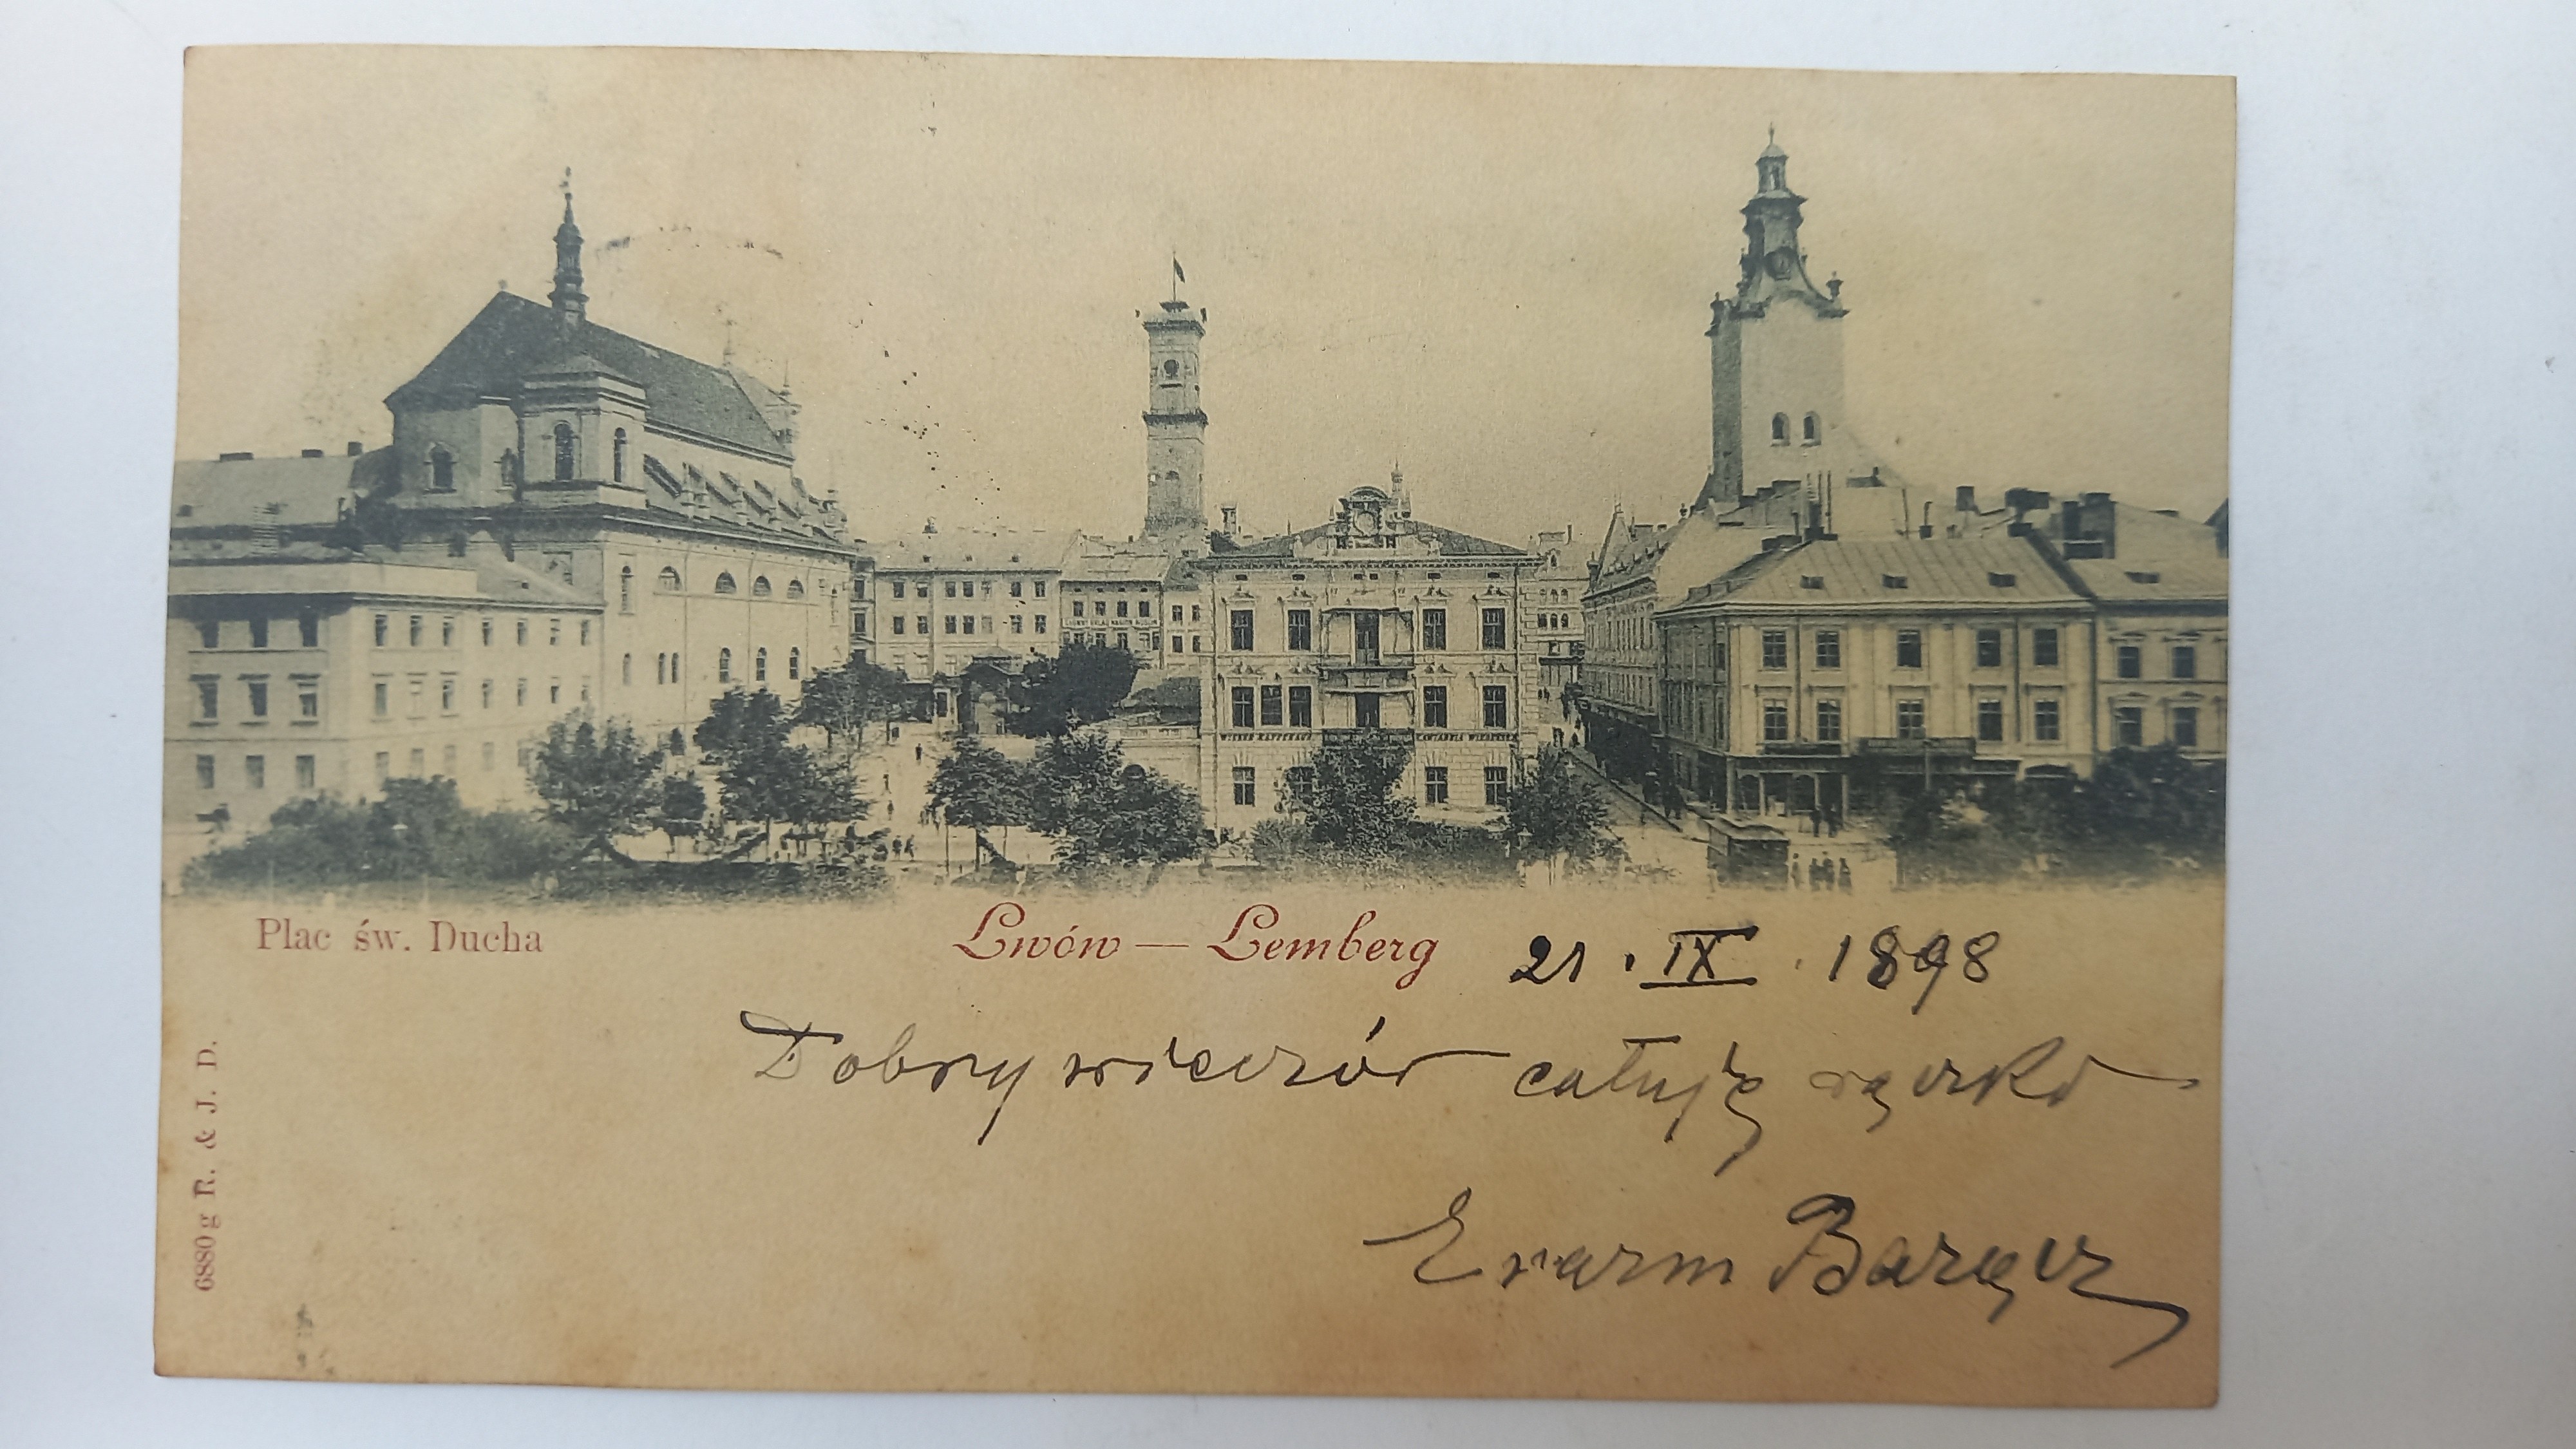 Plac św. Ducha
Lwów — Lemberg 21. IX. 1898
Dobry wieczór całuję rączki
Erazm Barącz
6880 g R. & J. D.